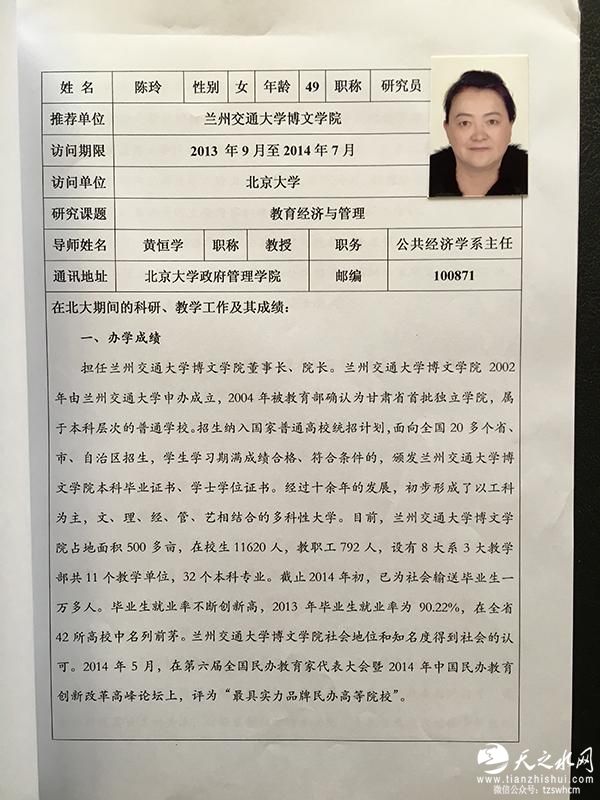 姓 名 陈玲 性别 女 年龄 49 职称 研究员
推荐单位 兰州交通大学博文学院
访问期限 2013 年 9 月至 2014 年 7 月
访问单位 北京大学
研究课题 教育经济与管理
导师姓名 黄恒学 职称 教授 职务 公共经济学系主任
通讯地址 北京大学政府管理学院 邮编 100871
在北大期间的科研、教学工作及其成绩：
一、办学成绩
担任兰州交通大学博文学院董事长、院长。兰州交通大学博文学院 2002
年由兰州交通大学申办成立，2004 年被教育部确认为甘肃省首批独立学院，属
于本科层次的普通学校。招生纳入国家普通高校统招计划，面向全国 20 多个省、
市、自治区招生，学生学习期满成绩合格、符合条件的，颁发兰州交通大学博
文学院本科毕业证书、学士学位证书。经过十余年的发展，初步形成了以工科
为主，文、理、经、管、艺相结合的多科性大学。目前，兰州交通大学博文学
院占地面积 500 多亩，在校生 11620 人，教职工 792 人，设有 8 大系 3 大教学
部共 11 个教学单位，32 个本科专业。截止 2014 年初，已为社会输送毕业生一
万多人。毕业生就业率不断创新高，2013 年毕业生就业率为 90.22%，在全省
42 所高校中名列前茅。兰州交通大学博文学院社会地位和知名度得到社会的认
可。2014 年 5 月，在第六届全国民办教育家代表大会暨 2014 年中国民办教育
创新改革高峰论坛上，评为“最具实力品牌民办高等院校”。
天之水网
www.tianzhishui.com
微信公众号：tzswhcm